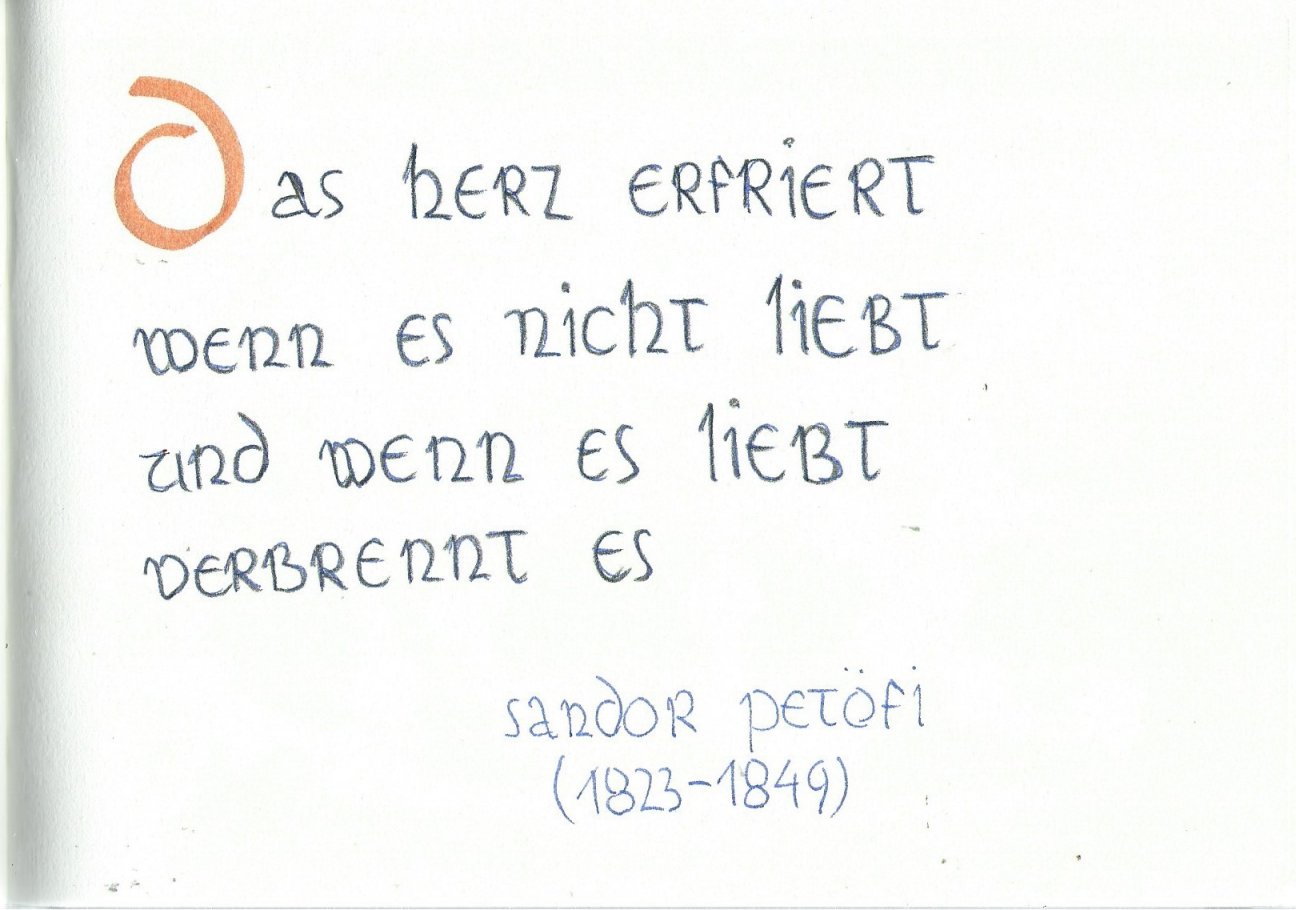 Das herz erfriert
wenn es nicht liebt
und wenn es liebt
verbrennt es
sandor petöfi
(1823-1849)